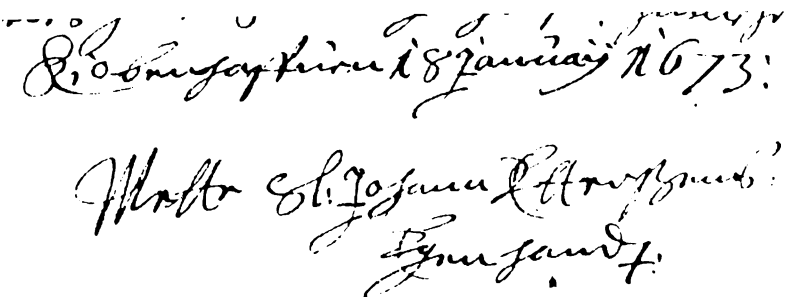 Kiobenhaffuen 18 Januarij 1673:
Mette Sl: Johann Petterßens
Egen handt: